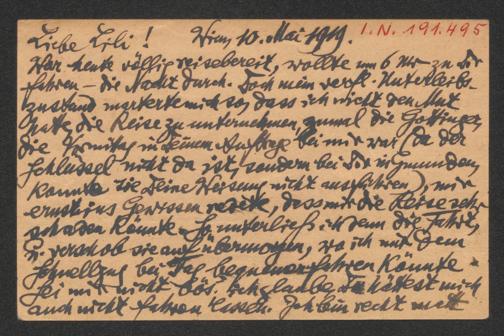 I. N. 191.495
Liebe Lili! Wien, 10. Mai 1919.
War heute völlig reisebereit, wollte um 6 Uhr zu Dir
fahren – die Nacht durch. Doch mein verfl. Unterleibs-
zustand marterte mich so, dass ich nicht den Mut
hatte, die Reise zu unternehmen, zumal die Göttinger,
die Vormittag in Deinem Auftrage bei mir war (da der
Schlüssel nicht da ist, sondern bei Dir in Gmunden,
konnte sie Deine Weisung nicht ausführen), mir
ernst ins Gewissen redete, dass mir die Reise sehr
schaden könnte. So unterließ ich denn die Fahrt,
u. verschob sie auf übermorgen, wo ich mit dem
Schnellzug bei Tag bequemer fahren könnte –
Sei mir nicht bös. Ich glaube, Du hättest mich
auch nicht fahren lassen. Ich bin recht matt